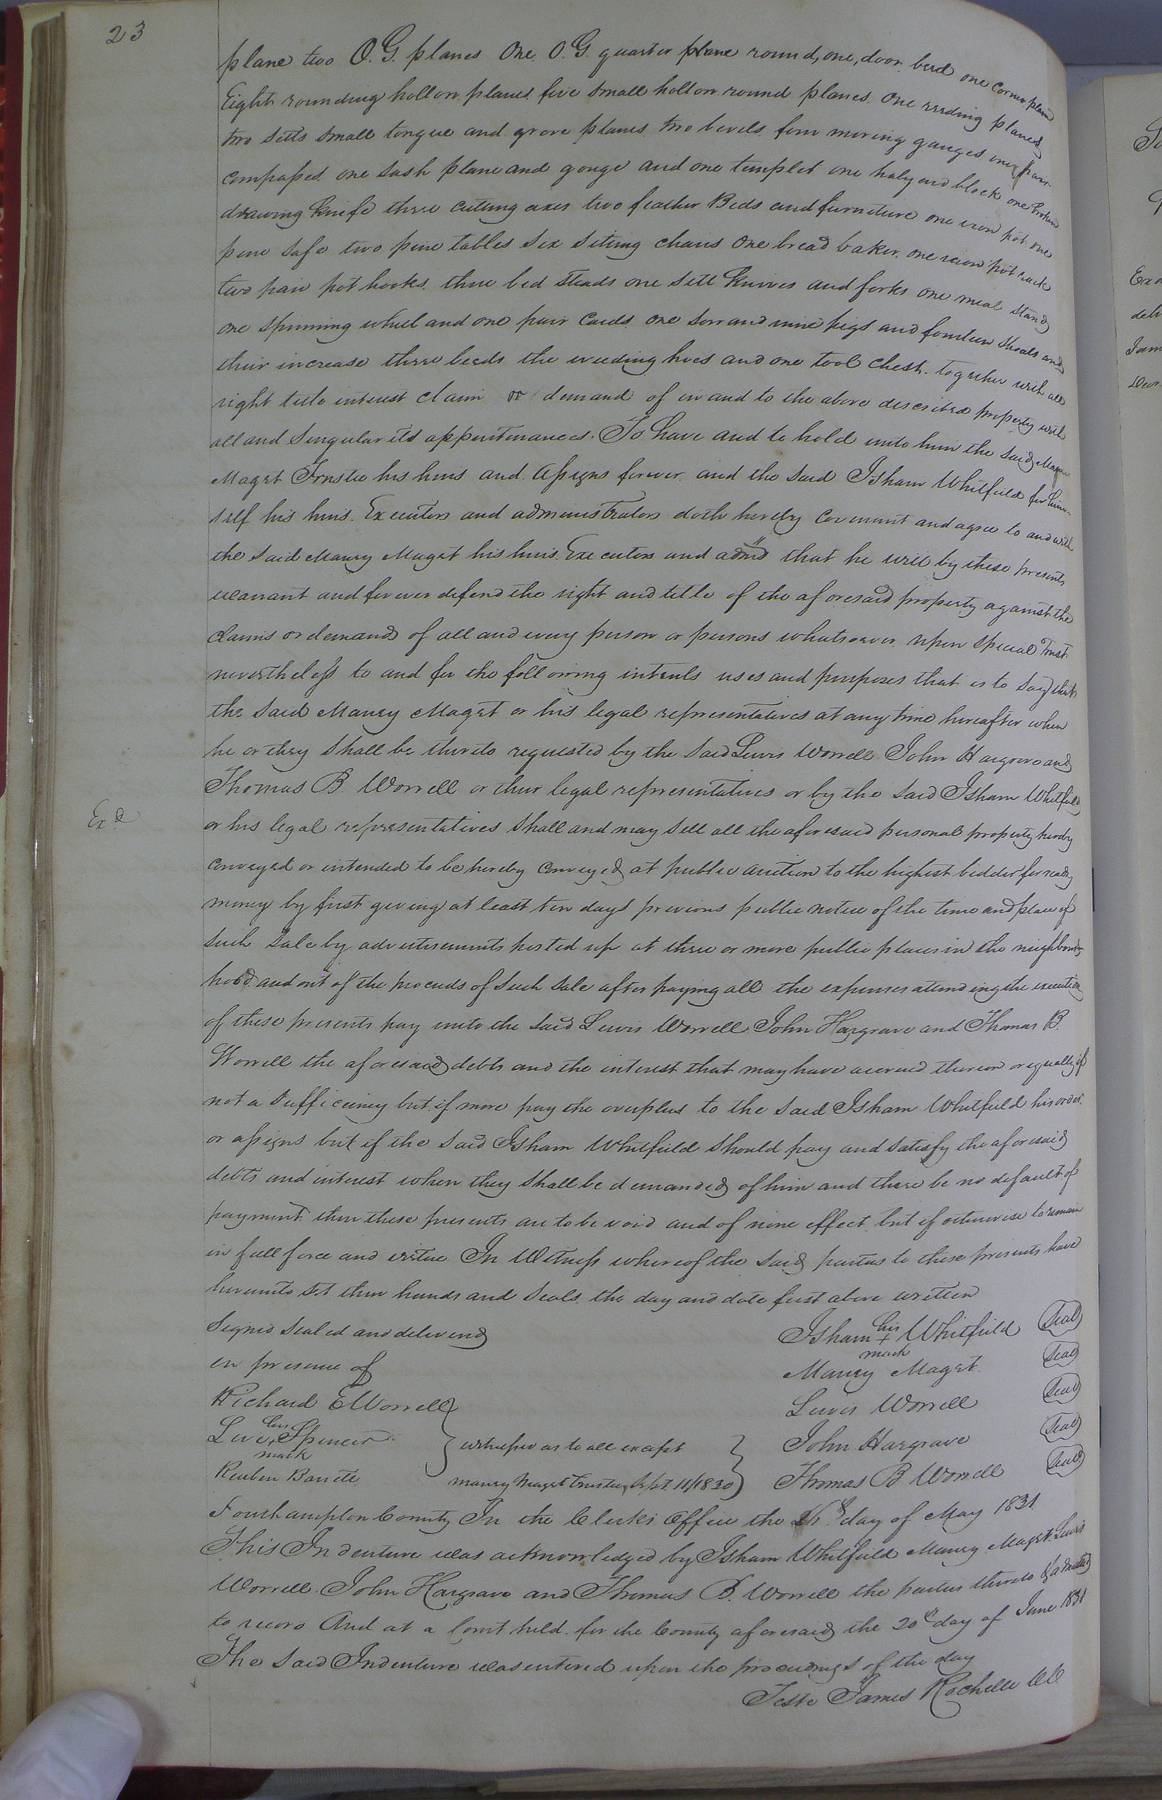 23
plane two O. G. planes One O. G. quarter plane round, one, door bead one corner plane
Eight rounding hollow planes five small hollow round planes one reeding plane
two setts small tongue and grove planes two bevels four moving gauges one
compassed one sash plane and gouge and one templet one halyard block one broken
drawing knife three cutting axes two feather Beds and furniture one iron pot one
pine safe two pine tables six siting chairs One bread baker one iron pot rack
two pair pot hooks, three bed steads one sett knives and forks one meal stand
one spinning wheel and one pair cards one sow and nine pigs and fourteen shoats and
their increase three the weeding hoes and one tool chest. together with all
right title interest claim or demand of in and to the above described property with
all and singular its appurtenances. To have and to hold unto him the said
Maget Trustee his heirs and Assigns forever and the said Isham Whitfield for him-
self his heirs. Executors and administrators doth hereby covenant and agree to and with
the said Maney Maget his heirs. Executors and admrs that he will by these presents
warrant and forever defend the right and title of the aforesaid property against the
claims or demand of all and every person or persons whatsoever upon special Trust
nevertheless to and for the following intents uses and purposes that is to say that
the said Maney Maget or his legal representatives at any time hereafter when
he or they shall be thereto requested by the said Lewis Worrell John Hargrave and
Thomas B. Worrell or their legal representatives or by the said Isham Whitfield
or his legal representatives shall and may sell all the aforesaid personal property hereby
Exd
conveyed or intended to be hereby conveyed at public auction to the highest bidder for ready
money by first giving at least ten days previous public notice of the time and place of
such sale by advertisements posted up at three or more public places in the neighbour-
hood and out of the proceeds of such sale after paying all the expenses attending the execution
of these presents pay unto the said Lewis Worrell John Hargrave and Thomas B.
Worrell the aforesaid debts and the interest that may have accrued thereon or equally if
not a sufficiency but if more pay the overplus to the said Isham Whitfield his order
or assigns but if the said Isham Whitfield should pay and satisfy the aforesaid
debts and interest when they shall be demanded of him and there be no default of
payment then these presents are to be void and of none effect but if otherwise to remain
in full force and virtue In Witness whereof the said parties to these presents have
hereunto set their hands and seals the day and date first above written
Signed Sealed and delivered
in presence of
Richard E Worrell
Levi his Spencer
mark
Reuben Barrett
witnesses as to all except
Maney Maget Trustee Sept. 11/1830
Isham his + mark Whitfield Seal
Maney Maget Seal
Lewis Worrell Seal
John Hargrave Seal
Thomas B Worrell Seal
Southampton County In the Clerks Office the day of May 1831.
This Indenture was acknowledged by Isham Whitfield Maney Maget Lewis
Worrell John Hargrave and Thomas B. Worrell the parties thereto & admitted
to record And at a Court held for the County aforesaid the 20th day of June 1831
The said Indenture was entered upon the proceedings of the day
Teste James Rochelle CC